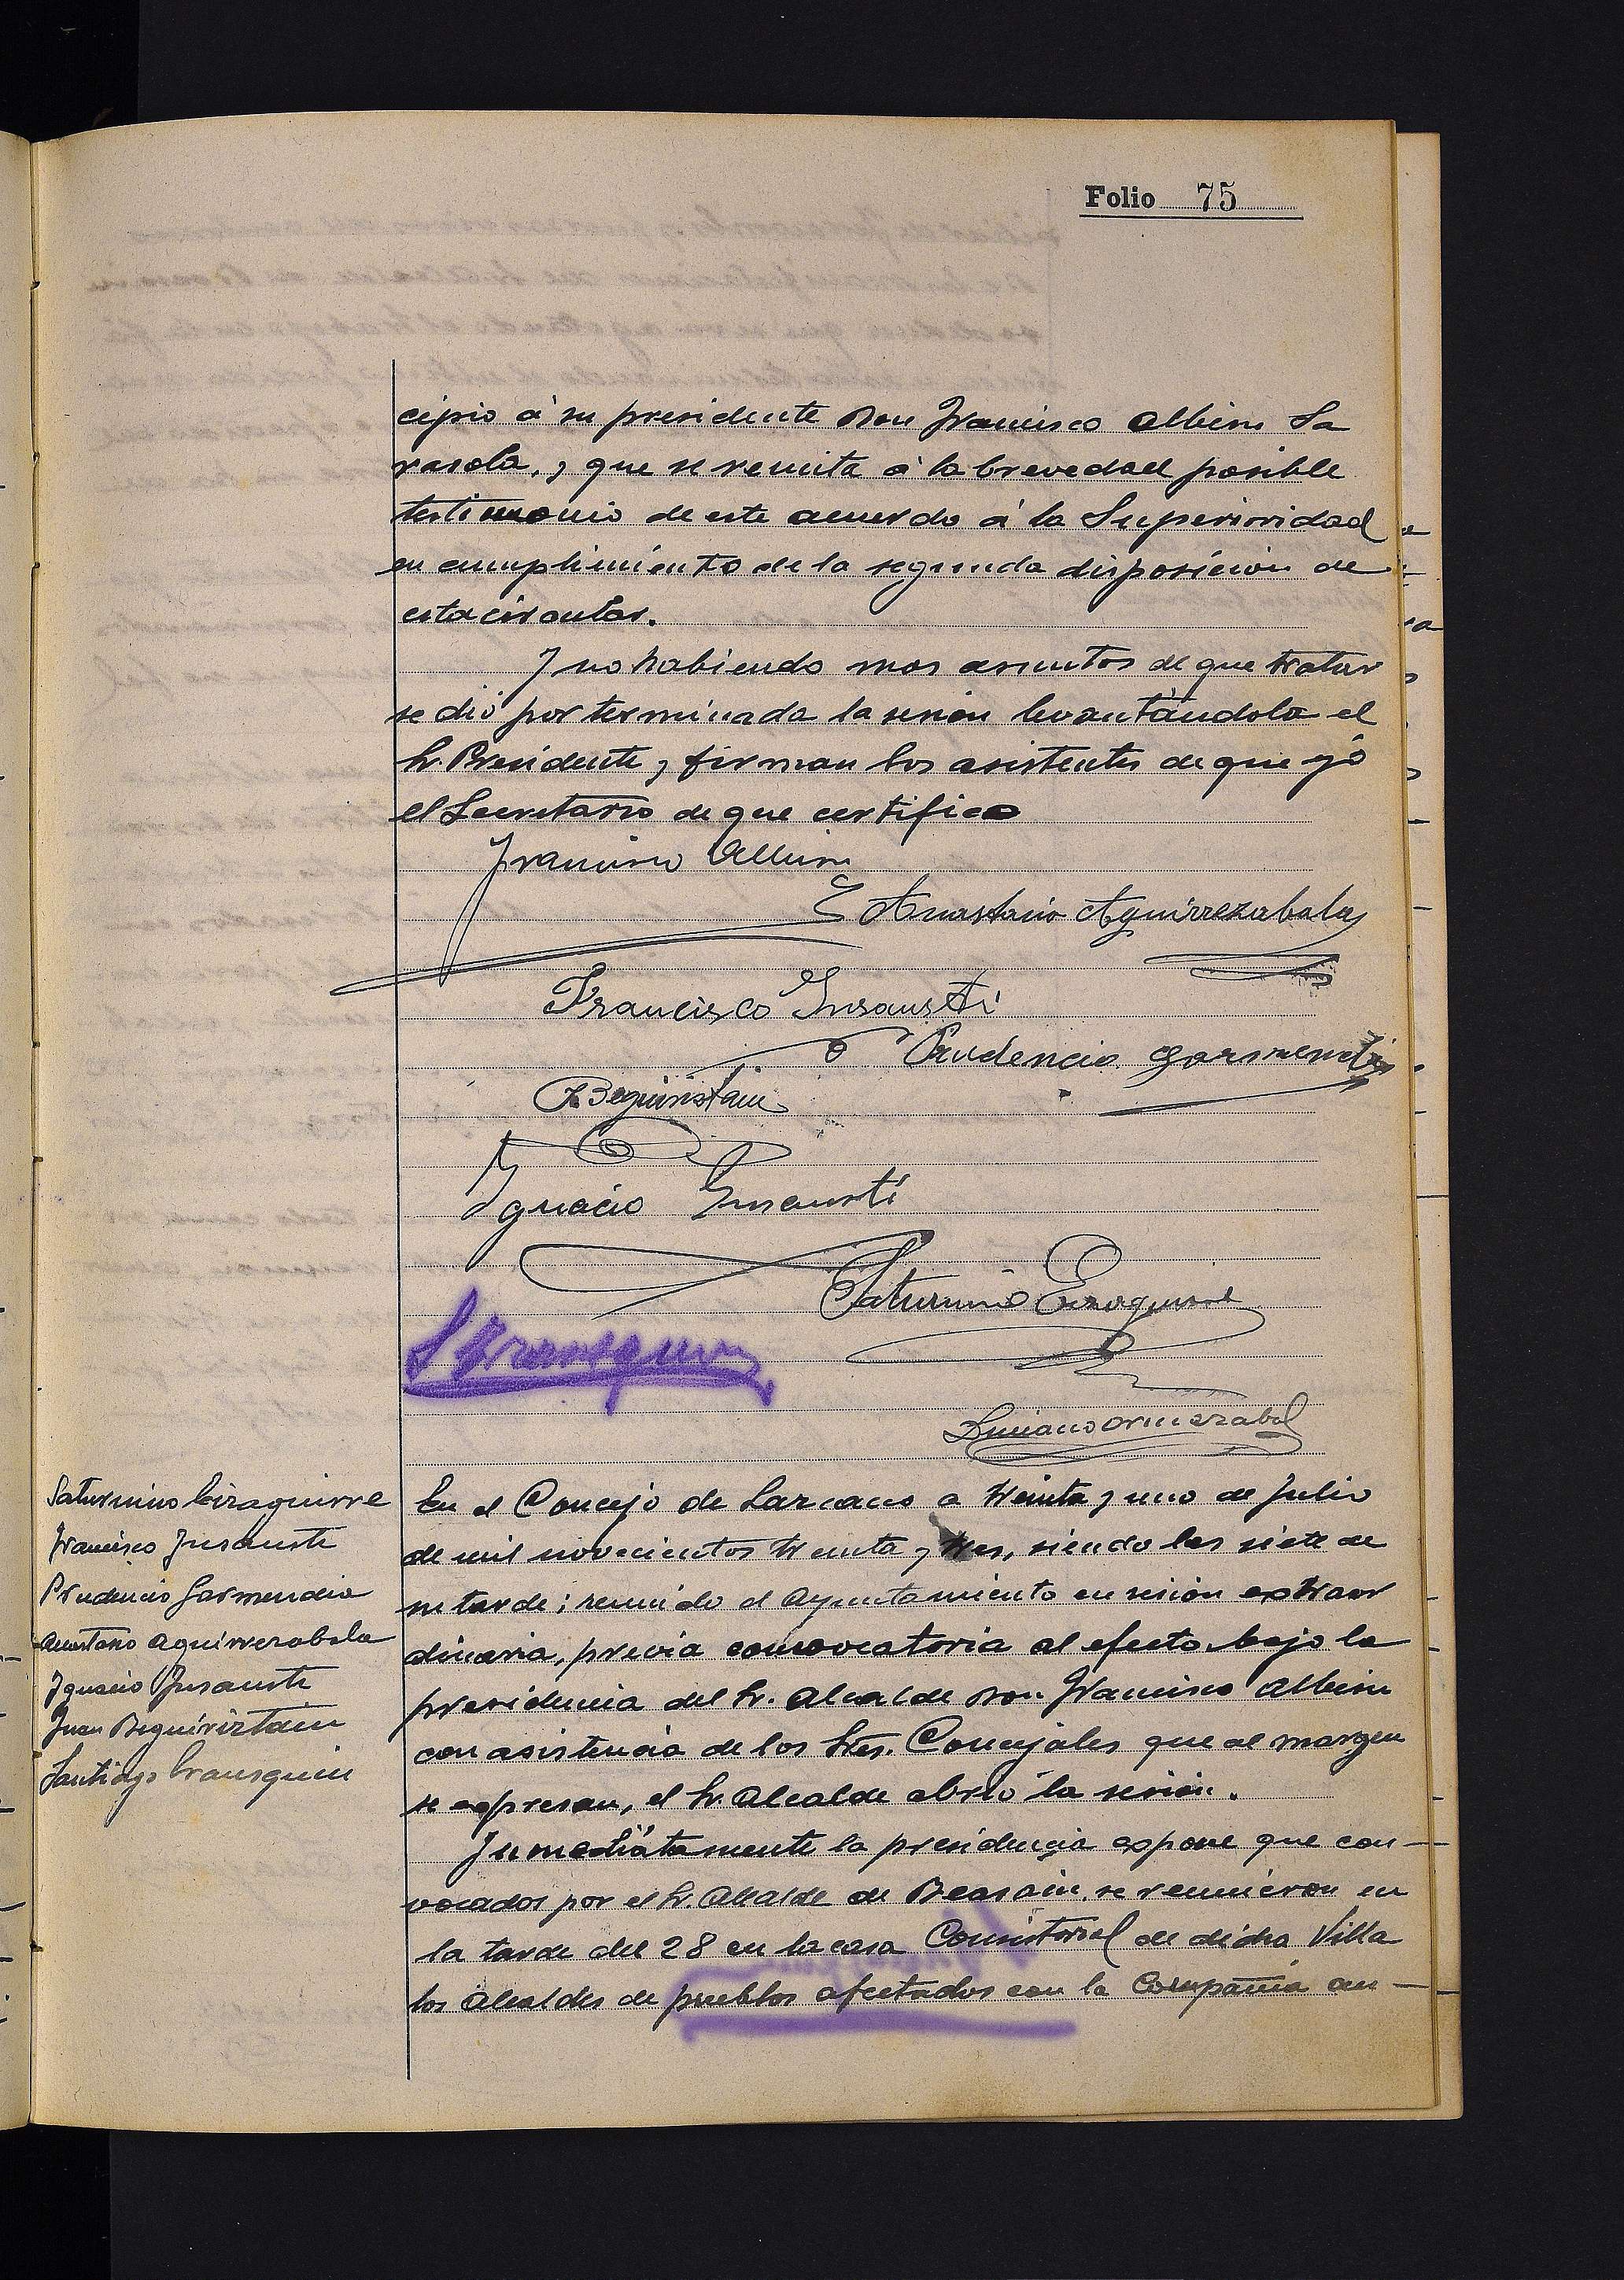 Folio 75
cipio á su presidente Don Francisco Albisu Sa
rasola, y que se remita á la brevedad posible
testimonio de este acuerdo á la Superioridad
en cumplimiento de la segunda disposición de
esta circular.
Y no habiendo mas asuntos de que tratar
se dió por terminada la sesión levantándola el
Sr. Presidente y firman los asistentes de que yó
el Secretario de que certifico
Francisco Albisu
Anastasio Aguirrezabala
Francisco Insausti
Prudencio Garmendia
J. Beguiristain
Ignacio Insausti
Saturnino Eizaguirre
S Irausquin
Luciano Ormazabal
Saturnino Eizaguirre
Francisco Insausti
Prudencio Garmendia
Anastasio Aguirrezabala
Ignacio Insausti
Juan Beguiriztain
Santiago Irausquin
En el Concejo de Lazcano a treinta y uno de Julio
de mil novecientos treinta y tres, siendo las siete de
su tarde; reunido el Ayuntamiento en sesión extraor
dinaria, previa convocatoria al efecto bajo la
presidencia del Sr. Alcalde Don Francisco Albisu
con asistencia de los Sres. Concejales que al margen
se expresan, el Sr. Alcalde abrió la sesión.
Inmediátamente la presidencia expone que con-
vocados por el Sr. Alcalde de Beasain, se reunieron en
la tarde del 28 en la casa Consistorial de dicha Villa
los Alcaldes de pueblos afectados con la Compañia au-